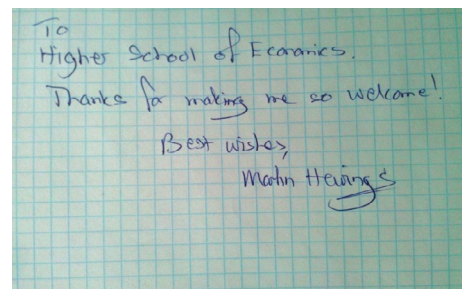 To
Higher School of Economics.
Thanks for making me so welcome!
Best wishes,
Martin Hewings